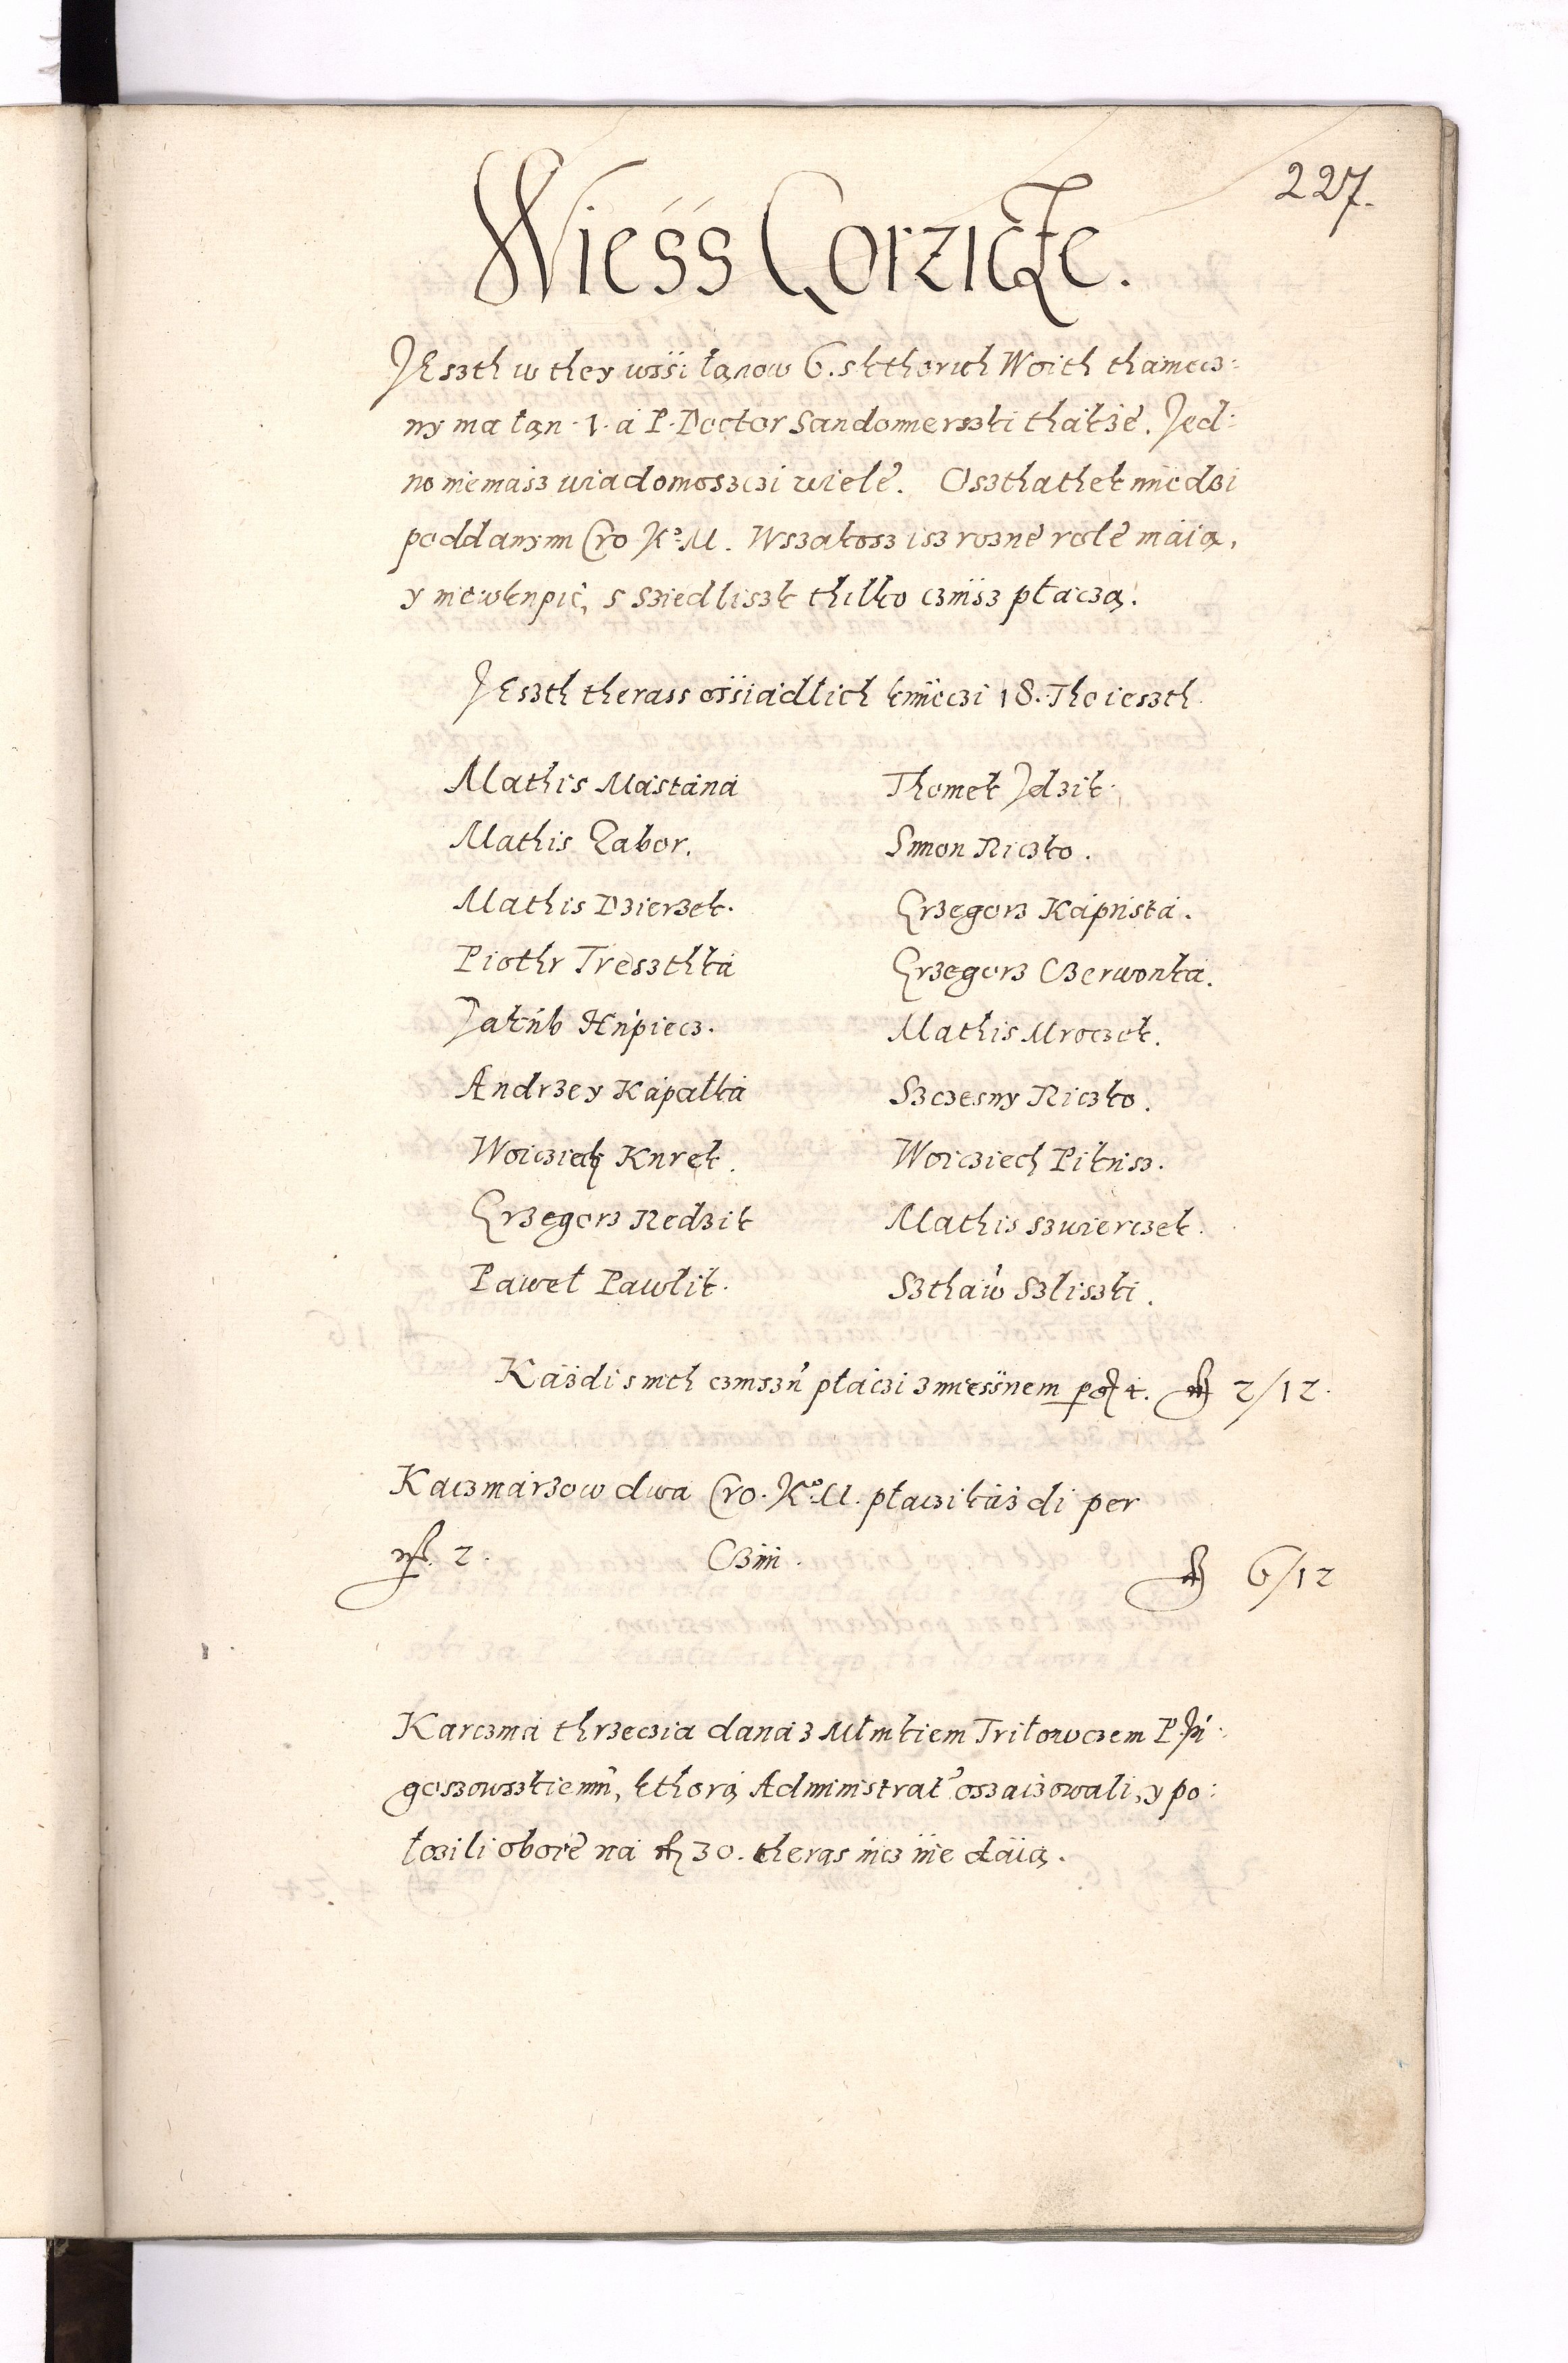 227.
Wieśś Gorzicze.
JEszth w they wssi łąnow 6. s kthorich Woith thamecz:
ny ma łąn .1. a P. Doctor Sandomierszki thakże. Jed:
no niemasz wiadomoszczi wiele. Oszthathek miedzi
poddanymi Cro Ko: M. Wszakosz isz rozne role maią,
y niewkupić, s Sziedliszk thilko czinsz płaczą.
JEszth therass ossiadlich kmieczi 18. Tho ieszth.
Mathis Mastana
Thomek Jdzik.
Mathis Zabor.
Simon Niczko.
Mathis Dzierzek.
Grzegorz Kapusta.
Piothr Treszthka
Grzegorz Czerwonka.
Jakub Hupiecz.
Mathis Mroczek.
Andrzey Kapałka
Szczesny Niczko.
Woicziech Kurek.
Woicziech Pikusz.
Grzegorz Nedzik
Mathis Szwierczek.
Paweł Pawlik.
Szthaw Szliszki.
Każdi s nich czinszu płaczi z miessnem po gr 4. fl 2/12.
Kaczmarzow dwa Cro. Ko. M. płaczi każdi per
mr. 2. Czini. fl 6/12
Karczma thrzeczia dana z Młinkiem Tritowczem P. Ju:
goszowszkiemu, kthorą Administrat oszaczowali, y po:
łozili oborę na fl 30. theras nicz nie daią.